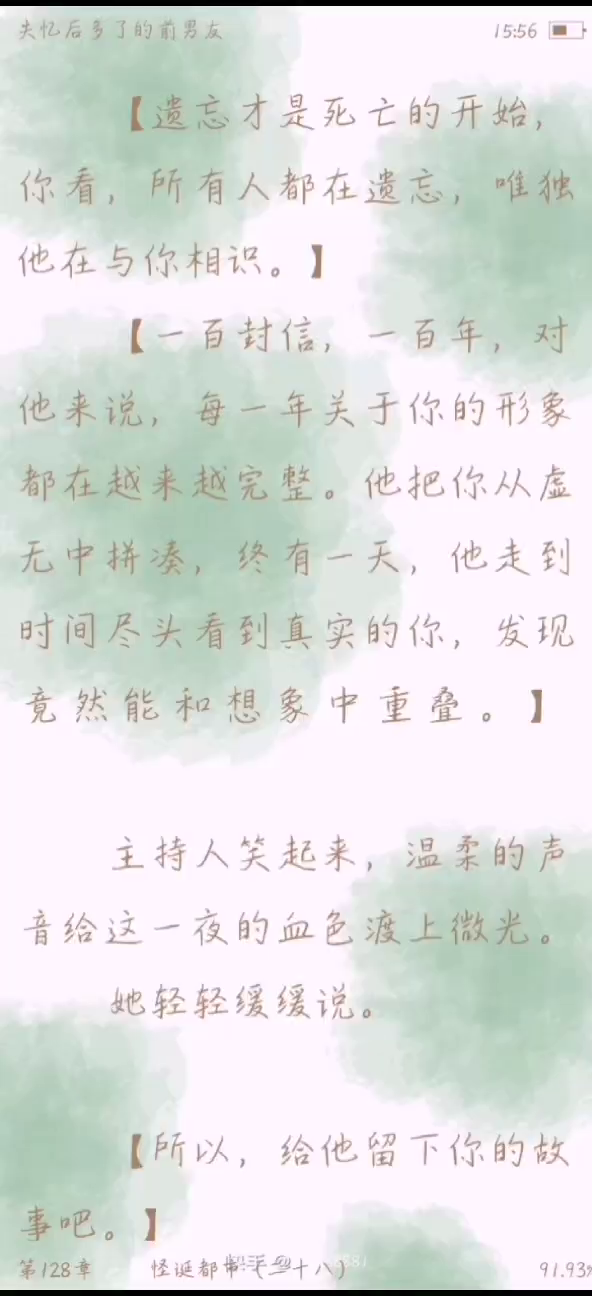 失忆后多了的前男友 15:56
【遗忘才是死亡的开始，
你看，所有人都在遗忘，唯独
他在与你相识。】
【一百封信，一百年，对
他来说，每一年关于你的形象
都在越来越完整。他把你从虚
无中拼凑，终有一天，他走到
时间尽头看到真实的你，发现
竟然能和想象中重叠。】
主持人笑起来，温柔的声
音给这一夜的血色渡上微光。
她轻轻缓缓说。
【所以，给他留下你的故
事吧。】
第128章 怪诞都市（二十八） 91.93%